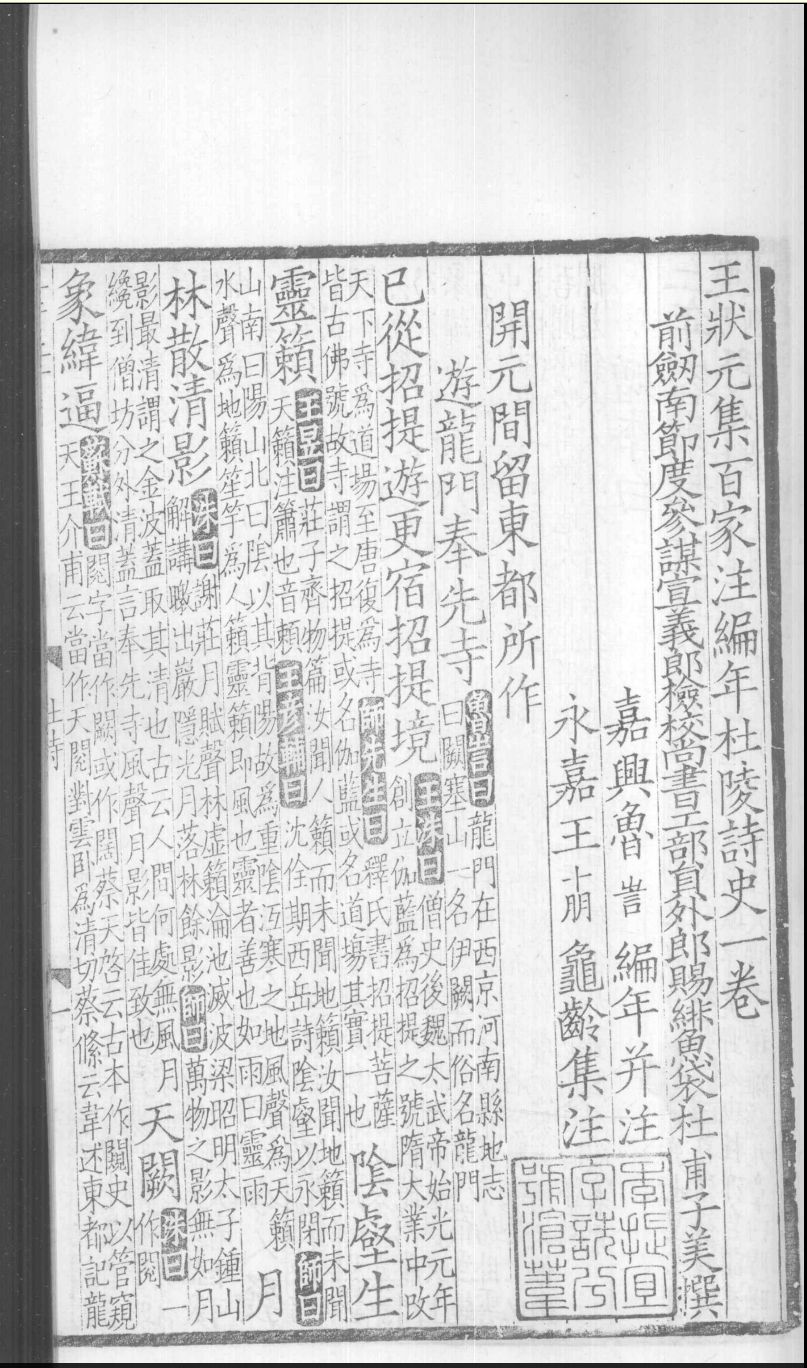 王狀元集百家注編年杜陵詩史一卷
前劒南節度參謀宣義郎檢校尚書工部負外郎賜緋魚袋杜 甫子美撰
嘉興魯 訔 編年并注
永嘉王十朋 龜齡集注
季振宜
字詵兮
號滄葦
開元間留東都所作
遊龍門奉先寺
魯訔曰龍門在西京河南縣地志
曰闕塞山一名伊闕而俗名龍門
已從招提遊更宿招提境
王洙曰僧史後魏太武帝始光元年
創立伽藍爲招提之號隋大業中改
天下寺爲道場至唐復爲寺師先生曰釋氏書招提菩薩
皆古佛號故寺謂之招提或名伽藍或名道場其實一也
陰壑生
靈籟
王昱曰莊子齊物篇汝聞人籟而未聞地籟汝聞地籟而未聞
天籟注簫也音頼王彥輔曰沈佺期西岳詩陰壑以永閉師曰
山南曰陽山北曰陰以其背陽故爲重陰沍寒之地風聲爲天籟
水聲爲地籟笙竽爲人籟靈籟即風也靈者善也如雨曰靈雨
月
林散清影
洙曰謝莊月賦聲林虛籟淪池滅波梁昭明太子鍾山
解講出巖隱光月落林餘影師曰萬物之影無如月
影最清謂之金波蓋取其清也古云人間何處無風月
纔到僧坊分外清蓋言奉先寺風聲月影皆佳致也
天闕
洙曰一
作閱
象緯逼
蘇軾曰閱字當作闕或作闊蔡天啓云古本作闚史以管窺
天王介甫云當作天閱對雲卧爲清切蔡絛云韋述東都記龍
杜詩
一